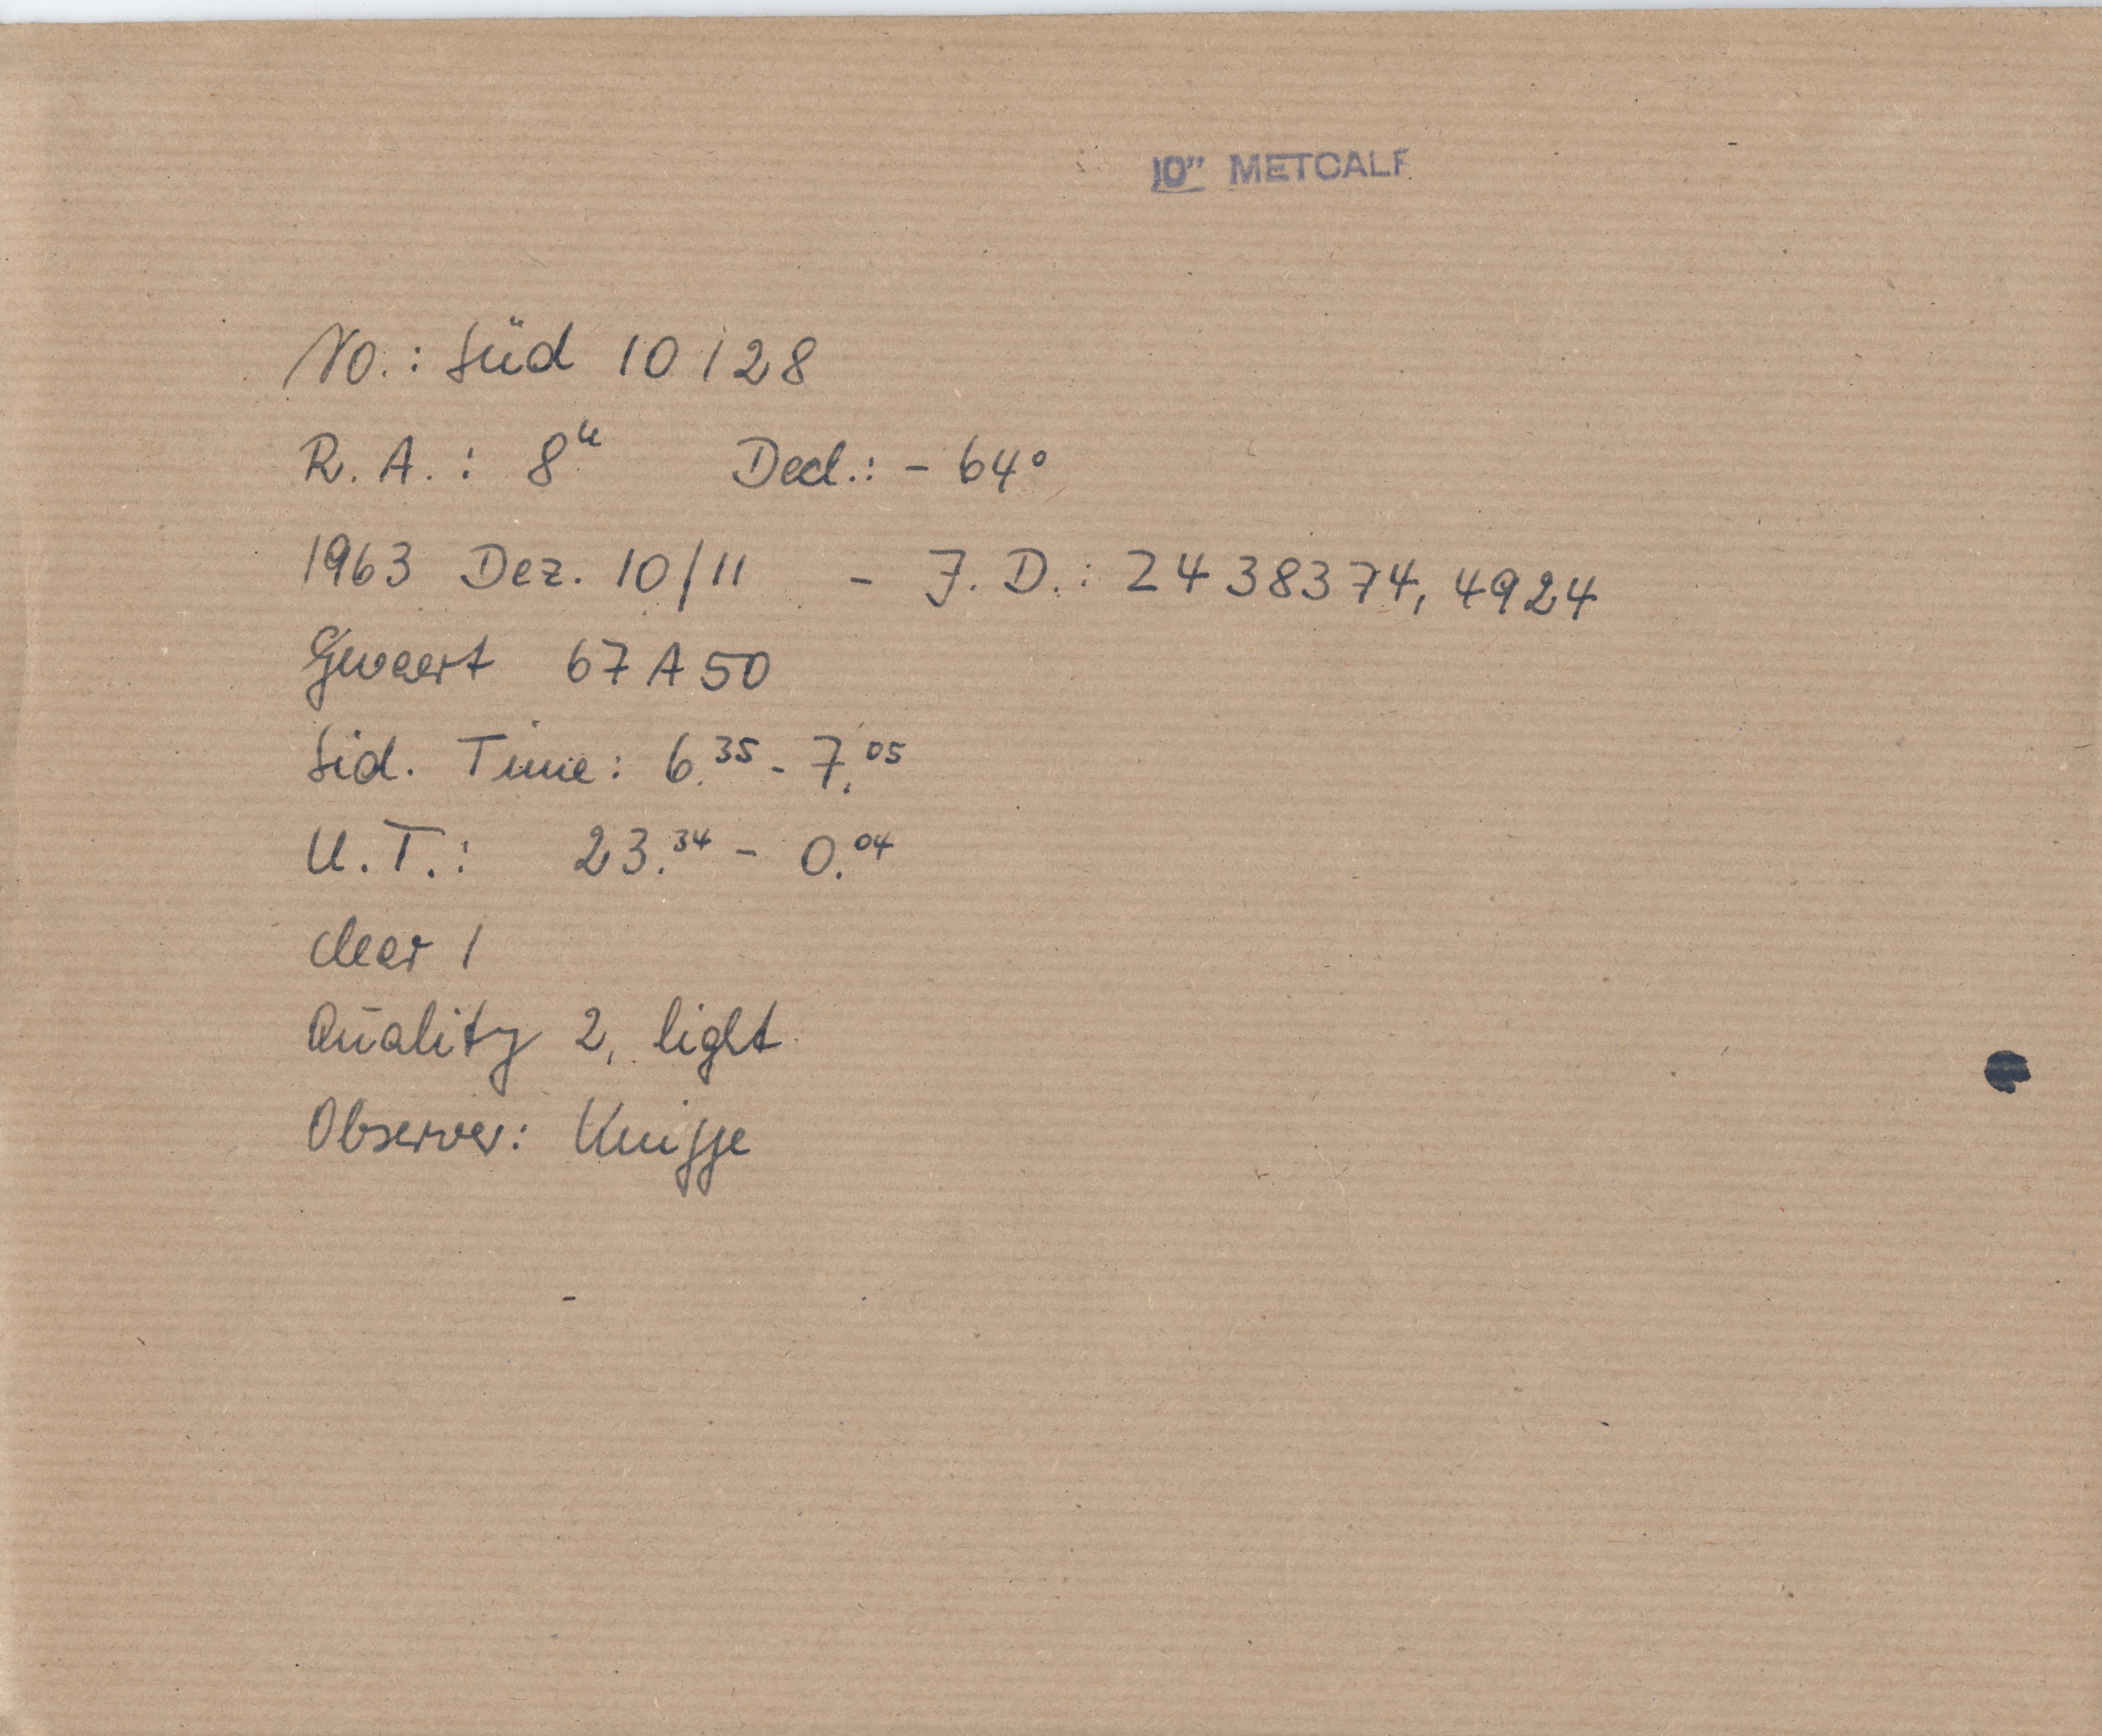 10" METCALF
No.: Süd 10128
R. A.: 8ʰ Decl.: - 64°
1963 Dez. 10/11 - J. D.: 2438374,4924
Gevaert 67 A 50
Sid. Time: 6.³⁵ - 7.⁰⁵
U.T.: 23.³⁴ - 0.⁰⁴
clear 1
Quality 2, light
Observer: Knigge